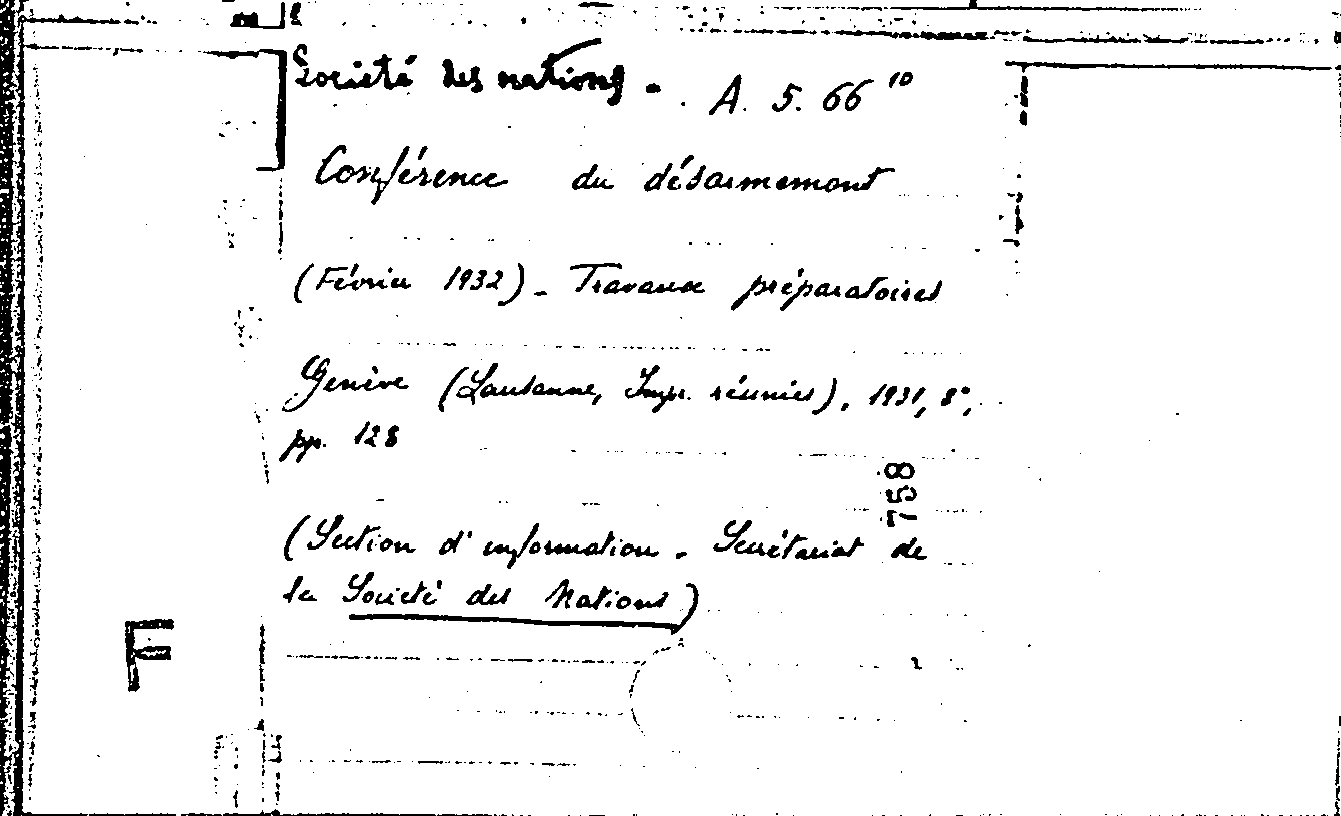 Société des nations - A. 5. 66 10
Conférence du désarmement
(Février 1932) - Travaux préparatoires
Genève (Lausanne, Impr. réunies), 1931, 8°,
pp. 128
758
(Section d'information - Secrétariat de
la Société des Nations)
F